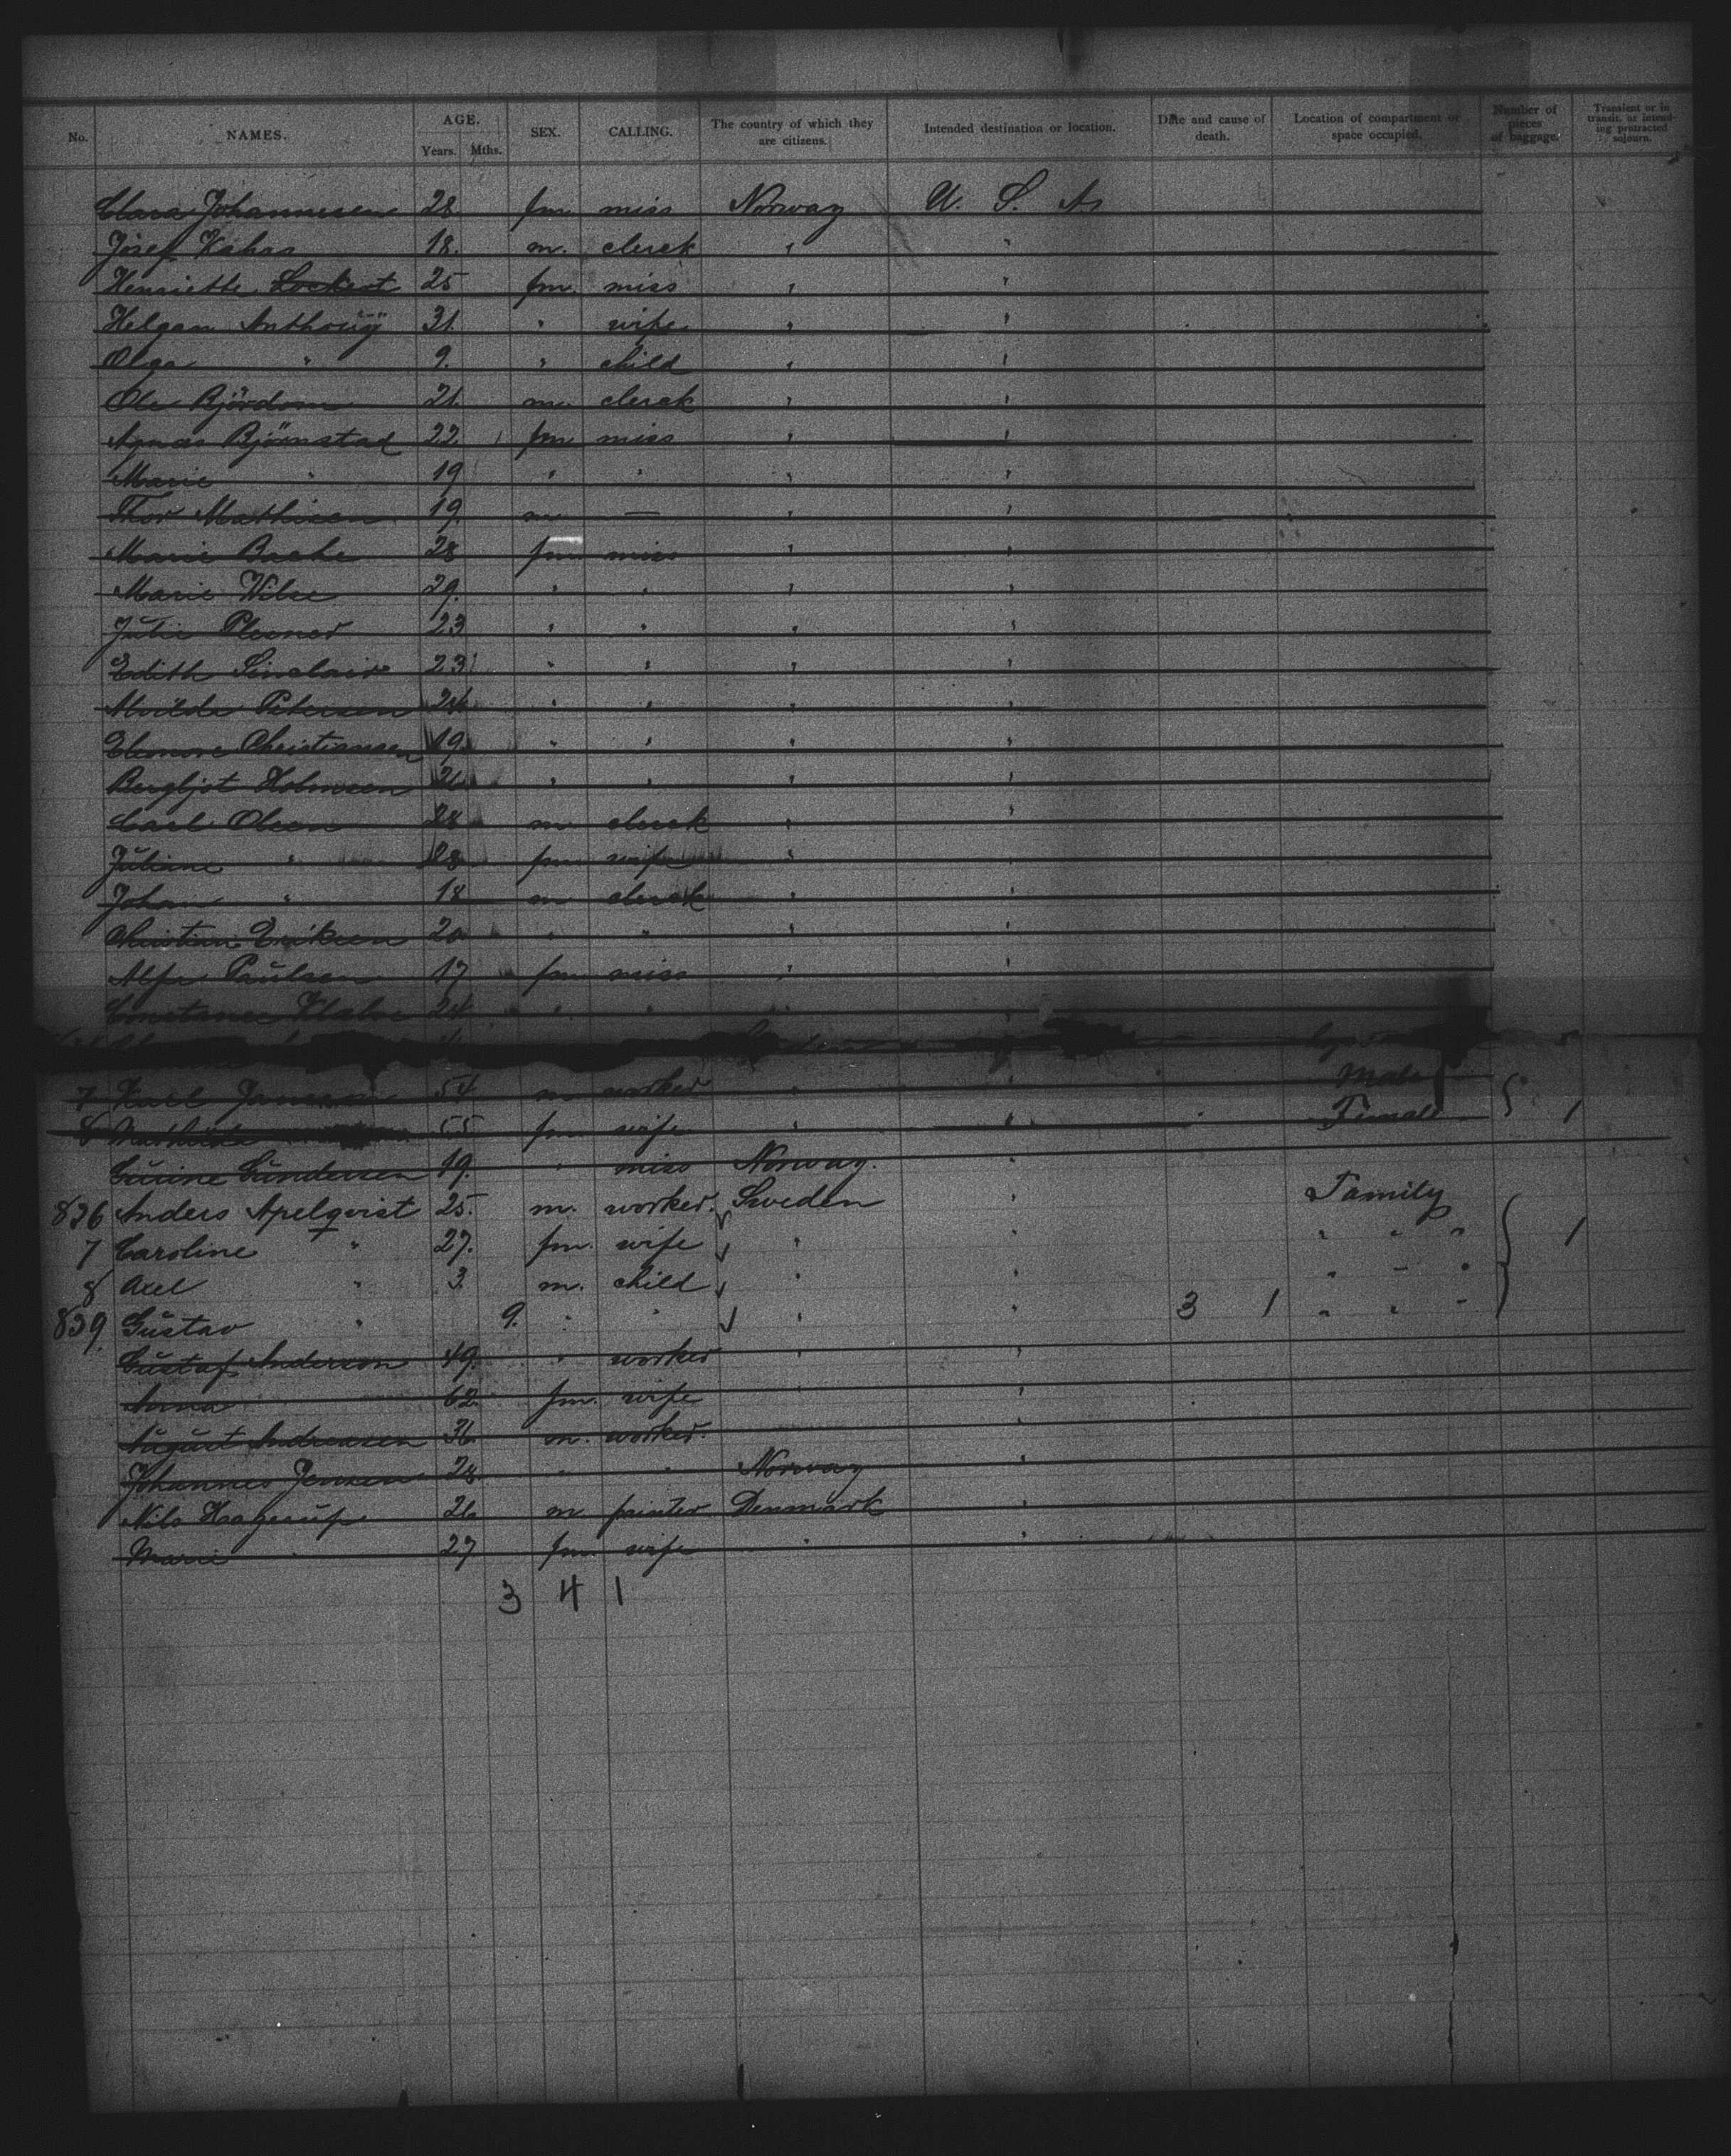 No. NAMES. AGE. Years. Mths. SEX. CALLING. The country of which they are citizens. Intended destination or location. Date and cause of death. Location of compartment or space occupied. Number of pieces of baggage. Transient or in transit, or intending protracted sojourn.
Clara Johannesen 28 fm. miss Norway U. S. A.
Josef Kahrs 18. m. clerck " "
Henriette Lockert 25 fm. miss " "
Helgan Anthony 31. " wife " "
Olga " 9. " child " "
Ole Björdom 21. m. clerck " "
Agnes Björnstad 22. fm. miss " "
Marie " 19 " " " "
Thor Mathisen 19. m — " "
Marie Bache 28 fm miss " "
Marie Wilse 29. " " " "
Julie Plesner 23 " " " "
Edith Sinclair 23 " " " "
Petersen " " " "
Eleonore Christiansen 19. " " " "
Bergljot Holmsen " " " "
Carl Olsen 28 m clerck " "
Juliane " fm wife " "
Johan " 18 m clerck " "
Christian Eriksen 20 " " " "
Paulsen 17 fm miss " "
Constance 24 " " " "
7 Karl 54 m worker " " Male
8 55 fm wife " " Female 1
Gurine Gundersen 19. " miss Norway. "
836 Anders Apelqvist 25. m. worker. Sweden " Family
7 Caroline " 27. fm. wife " " " " " 1
8 Axel " 3. m. child " " " " "
839 Gustav " 9. " " " " 3 1 " " "
Gustaf Anderson 49. " worker " "
Anna 62. fm. wife " "
August Andreasen 36 m. worker. "
Johannes Jensen 28. " " Norway "
Nils Hagerup 26 m painter Denmark "
Marie " 27 fm. wife " "
3 4 1